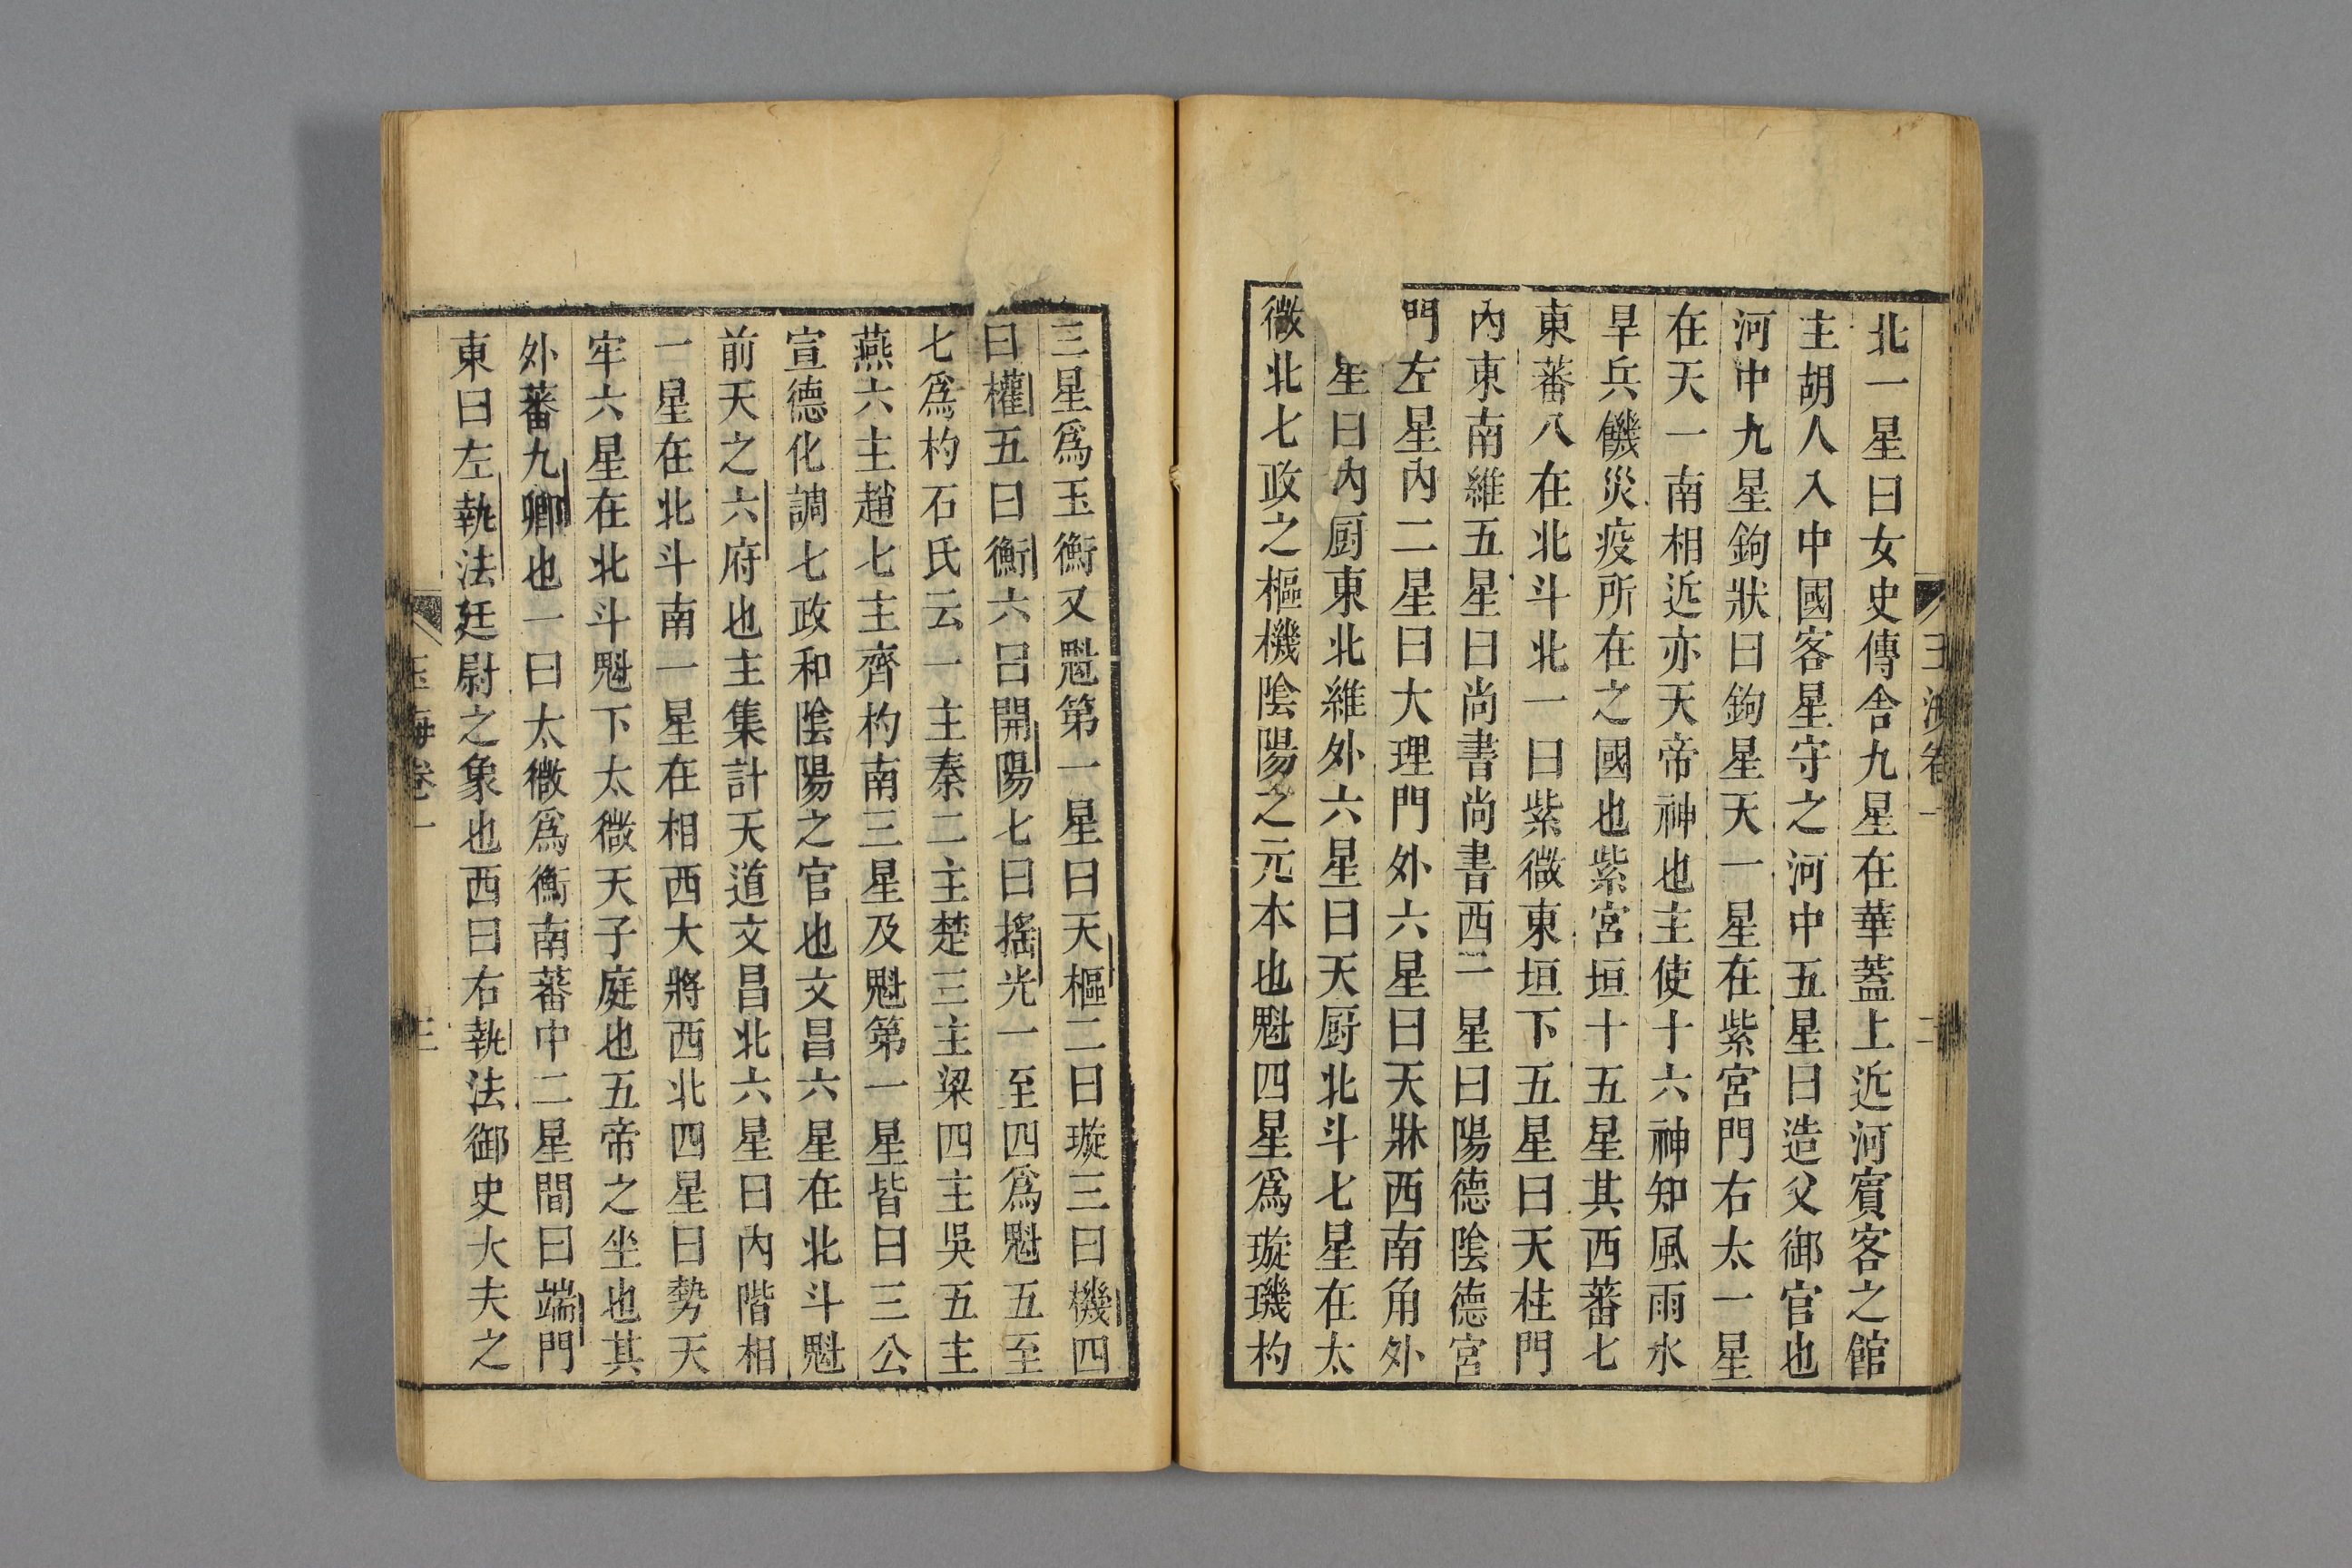 北一星曰女史傳舎九星在華蓋上近河賓客之館
主胡人入中國客星守之河中五星曰造父御官也
河中九星鉤狀曰鉤星天一星在紫宮門右太一星
在天一南相近亦天帝神也主使十六神知風雨水
旱兵饑災疫所在之國也紫宮垣十五星其西蕃七
東蕃八在北斗北一曰紫微東垣下五星曰天柱門
內東南維五星曰尚書尚書西二星曰陽德陰德宮
門左星內二星曰大理門外六星曰天牀西南角外
星曰內厨東北維外六星曰天厨北斗七星在太
微北七政之樞機陰陽之元本也魁四星爲璇璣杓
三星爲玉衡又魁第一星曰天樞二曰璇三曰機四
曰權五曰衡六呂開陽七曰搖光一至四爲魁五至
七爲杓石氏云一主秦二主楚三主梁四主吳五主
燕六主趙七主齊杓南三星及魁第一星皆曰三公
宣德化調七政和陰陽之官也文昌六星在北斗魁
前天之六府也主集計天道文昌北六星曰內階相
一星在北斗南一星在相西大將西北四星曰勢天
牢六星在北斗魁下太微天子庭也五帝之坐也其
外蕃九卿也一曰太微爲衡南蕃中二星間曰端門
東曰左執法廷尉之象也西曰右執法御史大夫之
玉海卷一
三